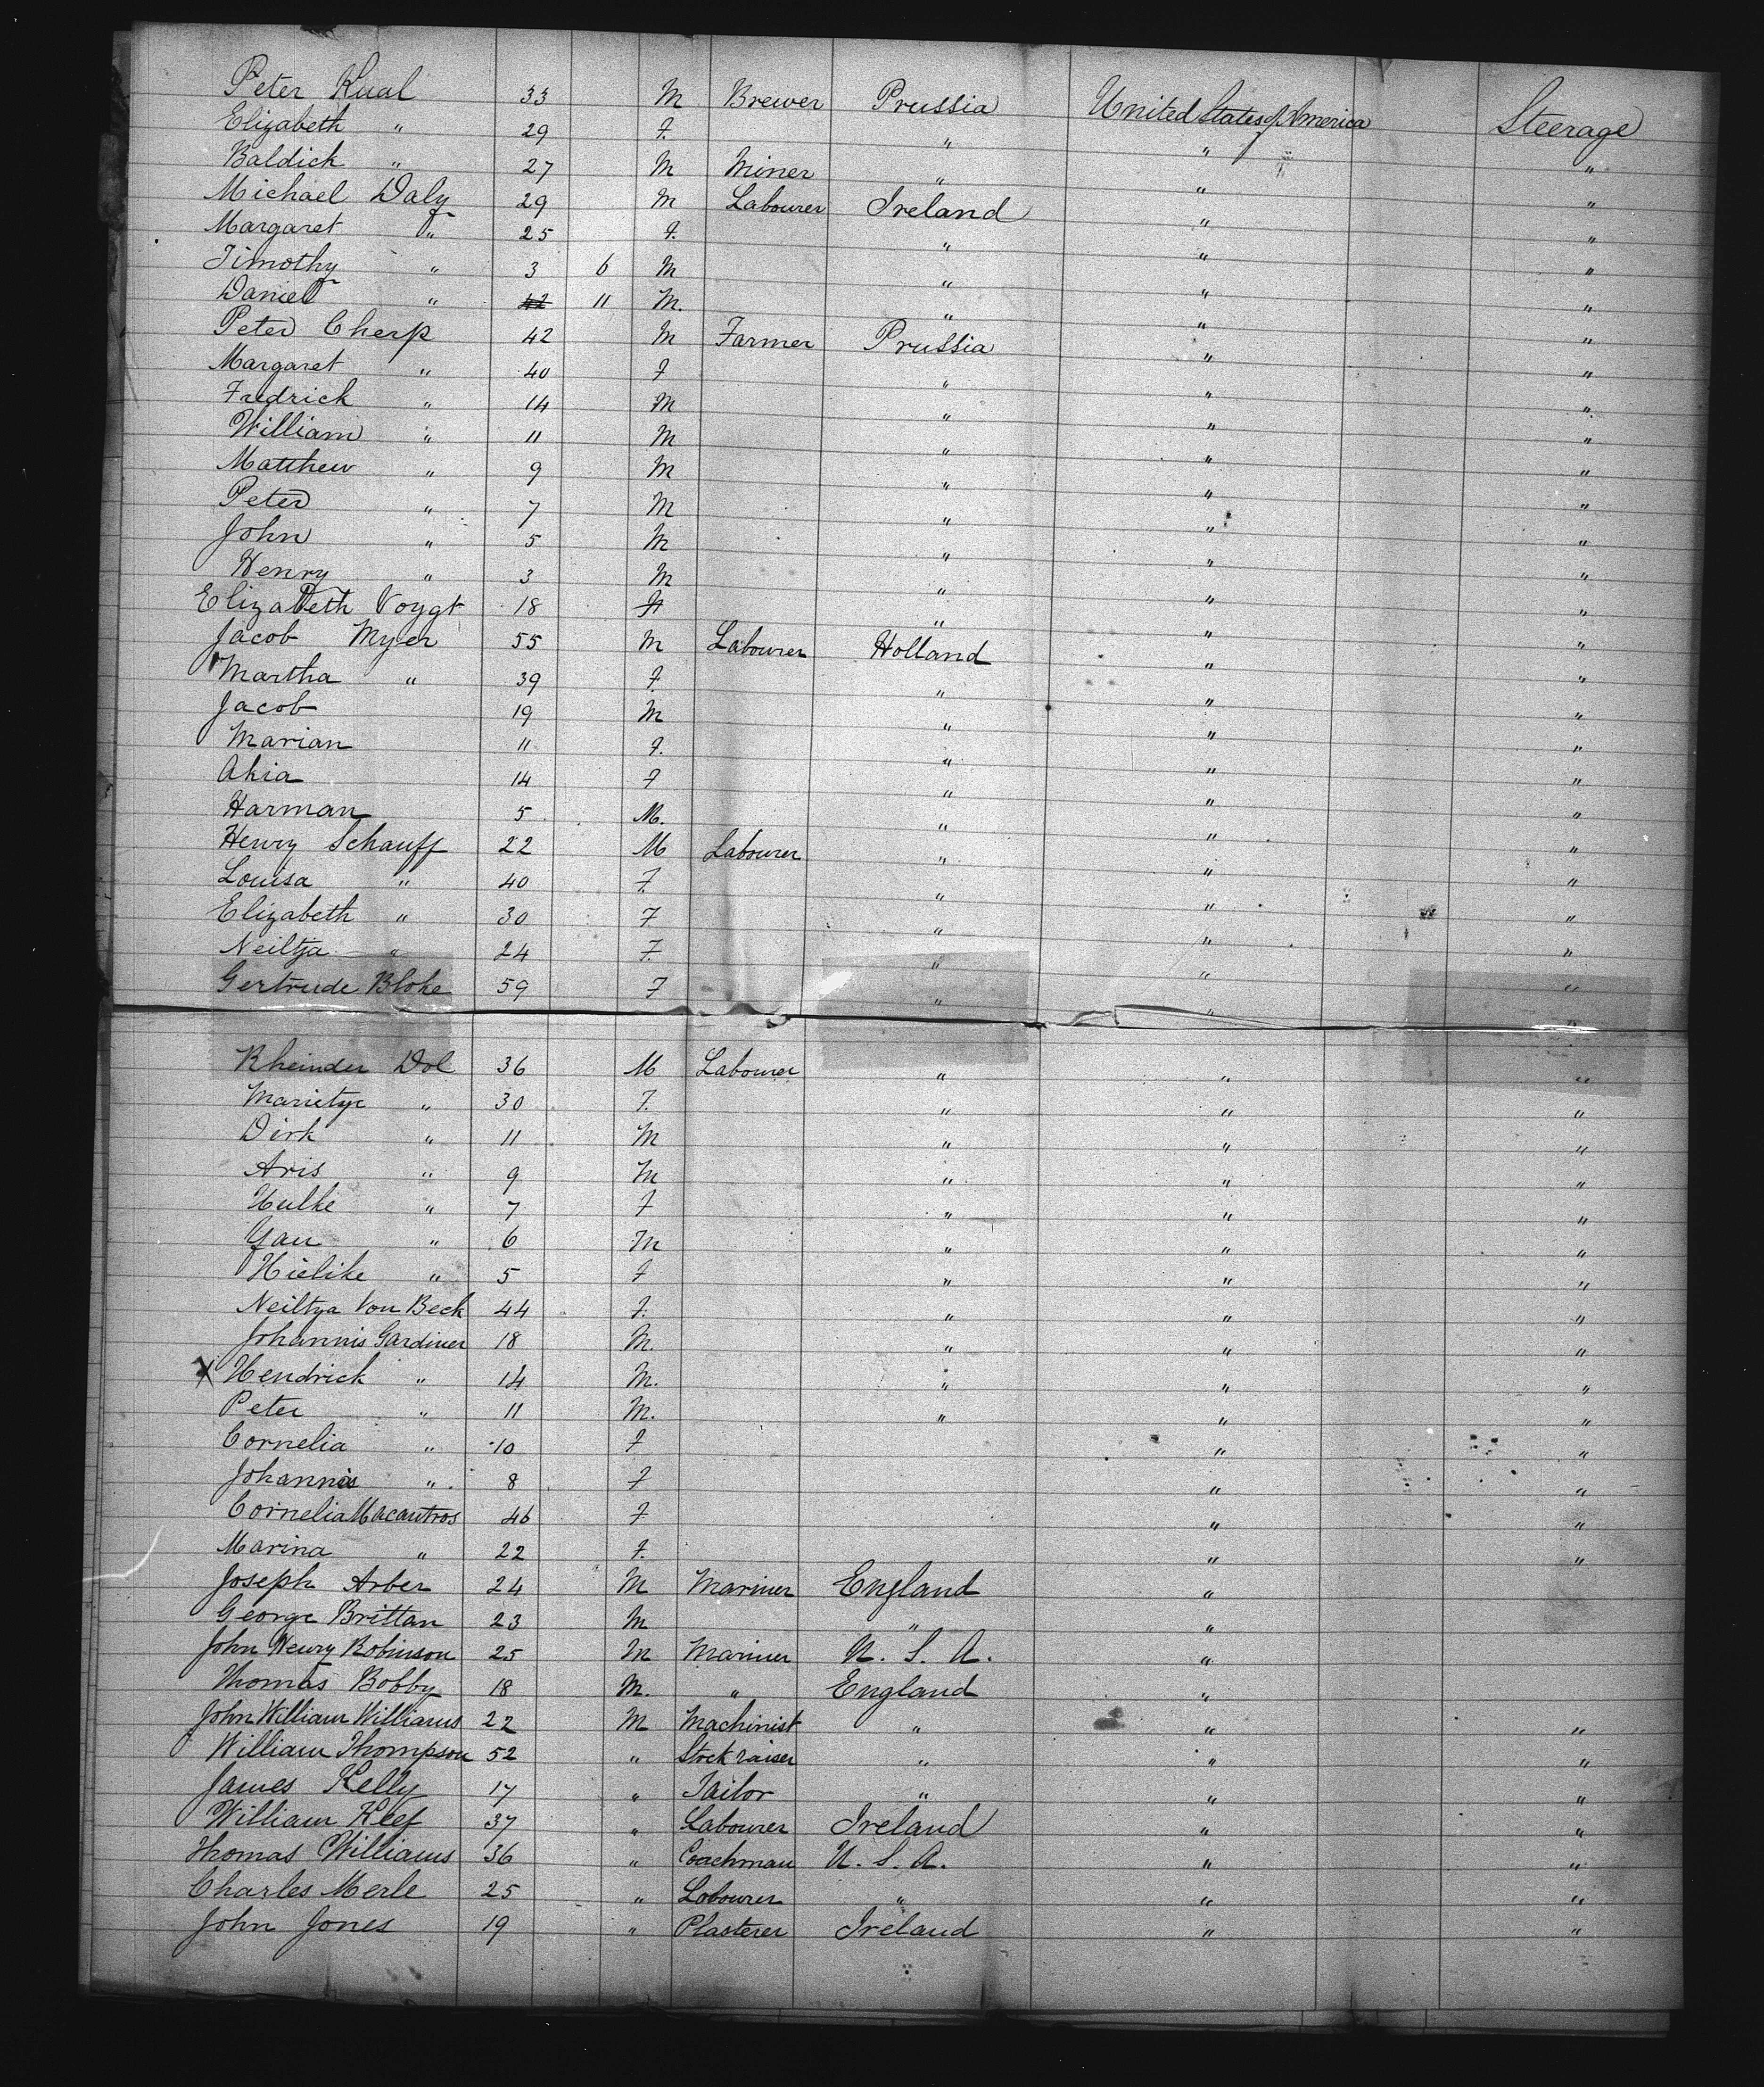 Peter Kual 33 M Brewer Prussia United States of America Steerage
Elizabeth " 29 F. " "
Baldick " 27 M Miner " " "
Michael Daly 29 M Labourer Ireland " "
Margaret " 25 F. " " "
Timothy " 3 6 M " " "
Daniel " 42 11 M. " " "
Peter Cherp 42 M Farmer Prussia " "
Margaret " 40 F " " "
Fredrick " 14 M " " "
William " 11 M " " "
Matthew " 9 M " " "
Peter " 7 M " " "
John " 5 M " " "
Henry " 3 M " " "
Elizabeth Voygt 18 F " " "
Jacob Myer 55 M Labourer Holland " "
Martha " 39 F. " " "
Jacob 19 M " " "
Marian 11 F. " " "
Akia 14 F " " "
Harman 5 M. " " "
Henry Schauff 22 M Labourer " " "
Louisa " 40 F. " " "
Elizabeth " 30 F " " "
Neiltja " 24 F. " " "
Gertrude Bloke 59 F " " "
Rheinder Dol 36 M Labourer " " "
Marietye " 30 F. " " "
Dirk " 11 M " " "
Aris " 9 M " " "
Hulke " 7 F " " "
Yau " 6 M " " "
Hielike " 5 F " " "
Neiltya Von Beck 44 F. " " "
Johannis Gardiner 18 M. " " "
X Hendrick " 14 M. " " "
Peter " 11 M. " " "
Cornelia " 10 F " "
Johannis " 8 F " "
Cornelia Macautros 46 F " "
Marina " 22 F. " "
Joseph Arber 24 M Mariner England "
George Brittan 23 M " "
John Henry Robinson 25 M Mariner U. S. A. "
Thomas Bobby 18 M. " England "
John William Williams 22 M Machinist " " "
William Thompson 52 " Stock raiser " " "
James Kelly 17 " Tailor " " "
William Keef 37 " Labourer Ireland " "
Thomas Williams 36 " Coachman U. S. A. " "
Charles Merle 25 " Labourer " " "
John Jones 19 " Plasterer Ireland " "